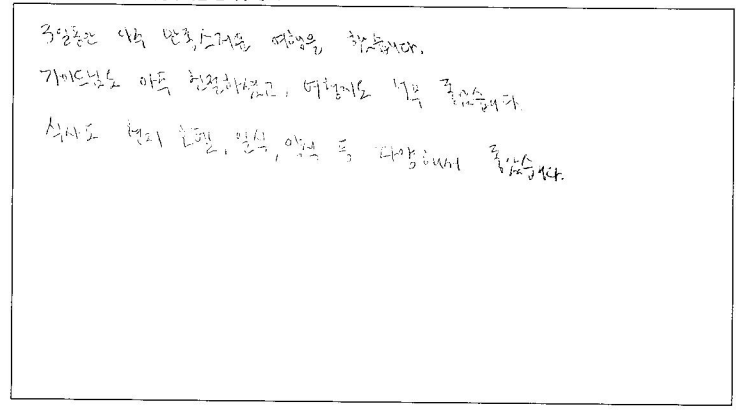 3일동안 아주 만족스러운 여행을 했습니다.
가이드님도 아주 친절하셨고, 여행지도 너무 좋았습니다.
식사도 현지 호텔, 일식, 양식 등 다양해서 좋았습니다.